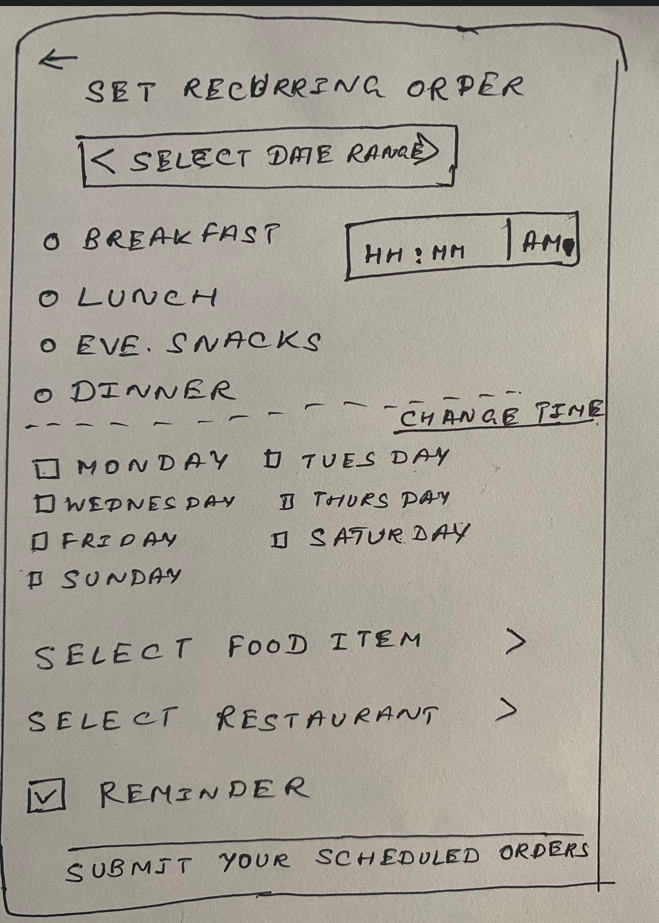 ←
SET RECURRING ORDER
< SELECT DATE RANGE >
BREAKFAST HH:MM AM
LUNCH
EVE. SNACKS
DINNER
CHANGE TIME
MONDAY TUESDAY
WEDNESDAY THURSDAY
FRIDAY SATURDAY
SUNDAY
SELECT FOOD ITEM >
SELECT RESTAURANT >
REMINDER
SUBMIT YOUR SCHEDULED ORDERS